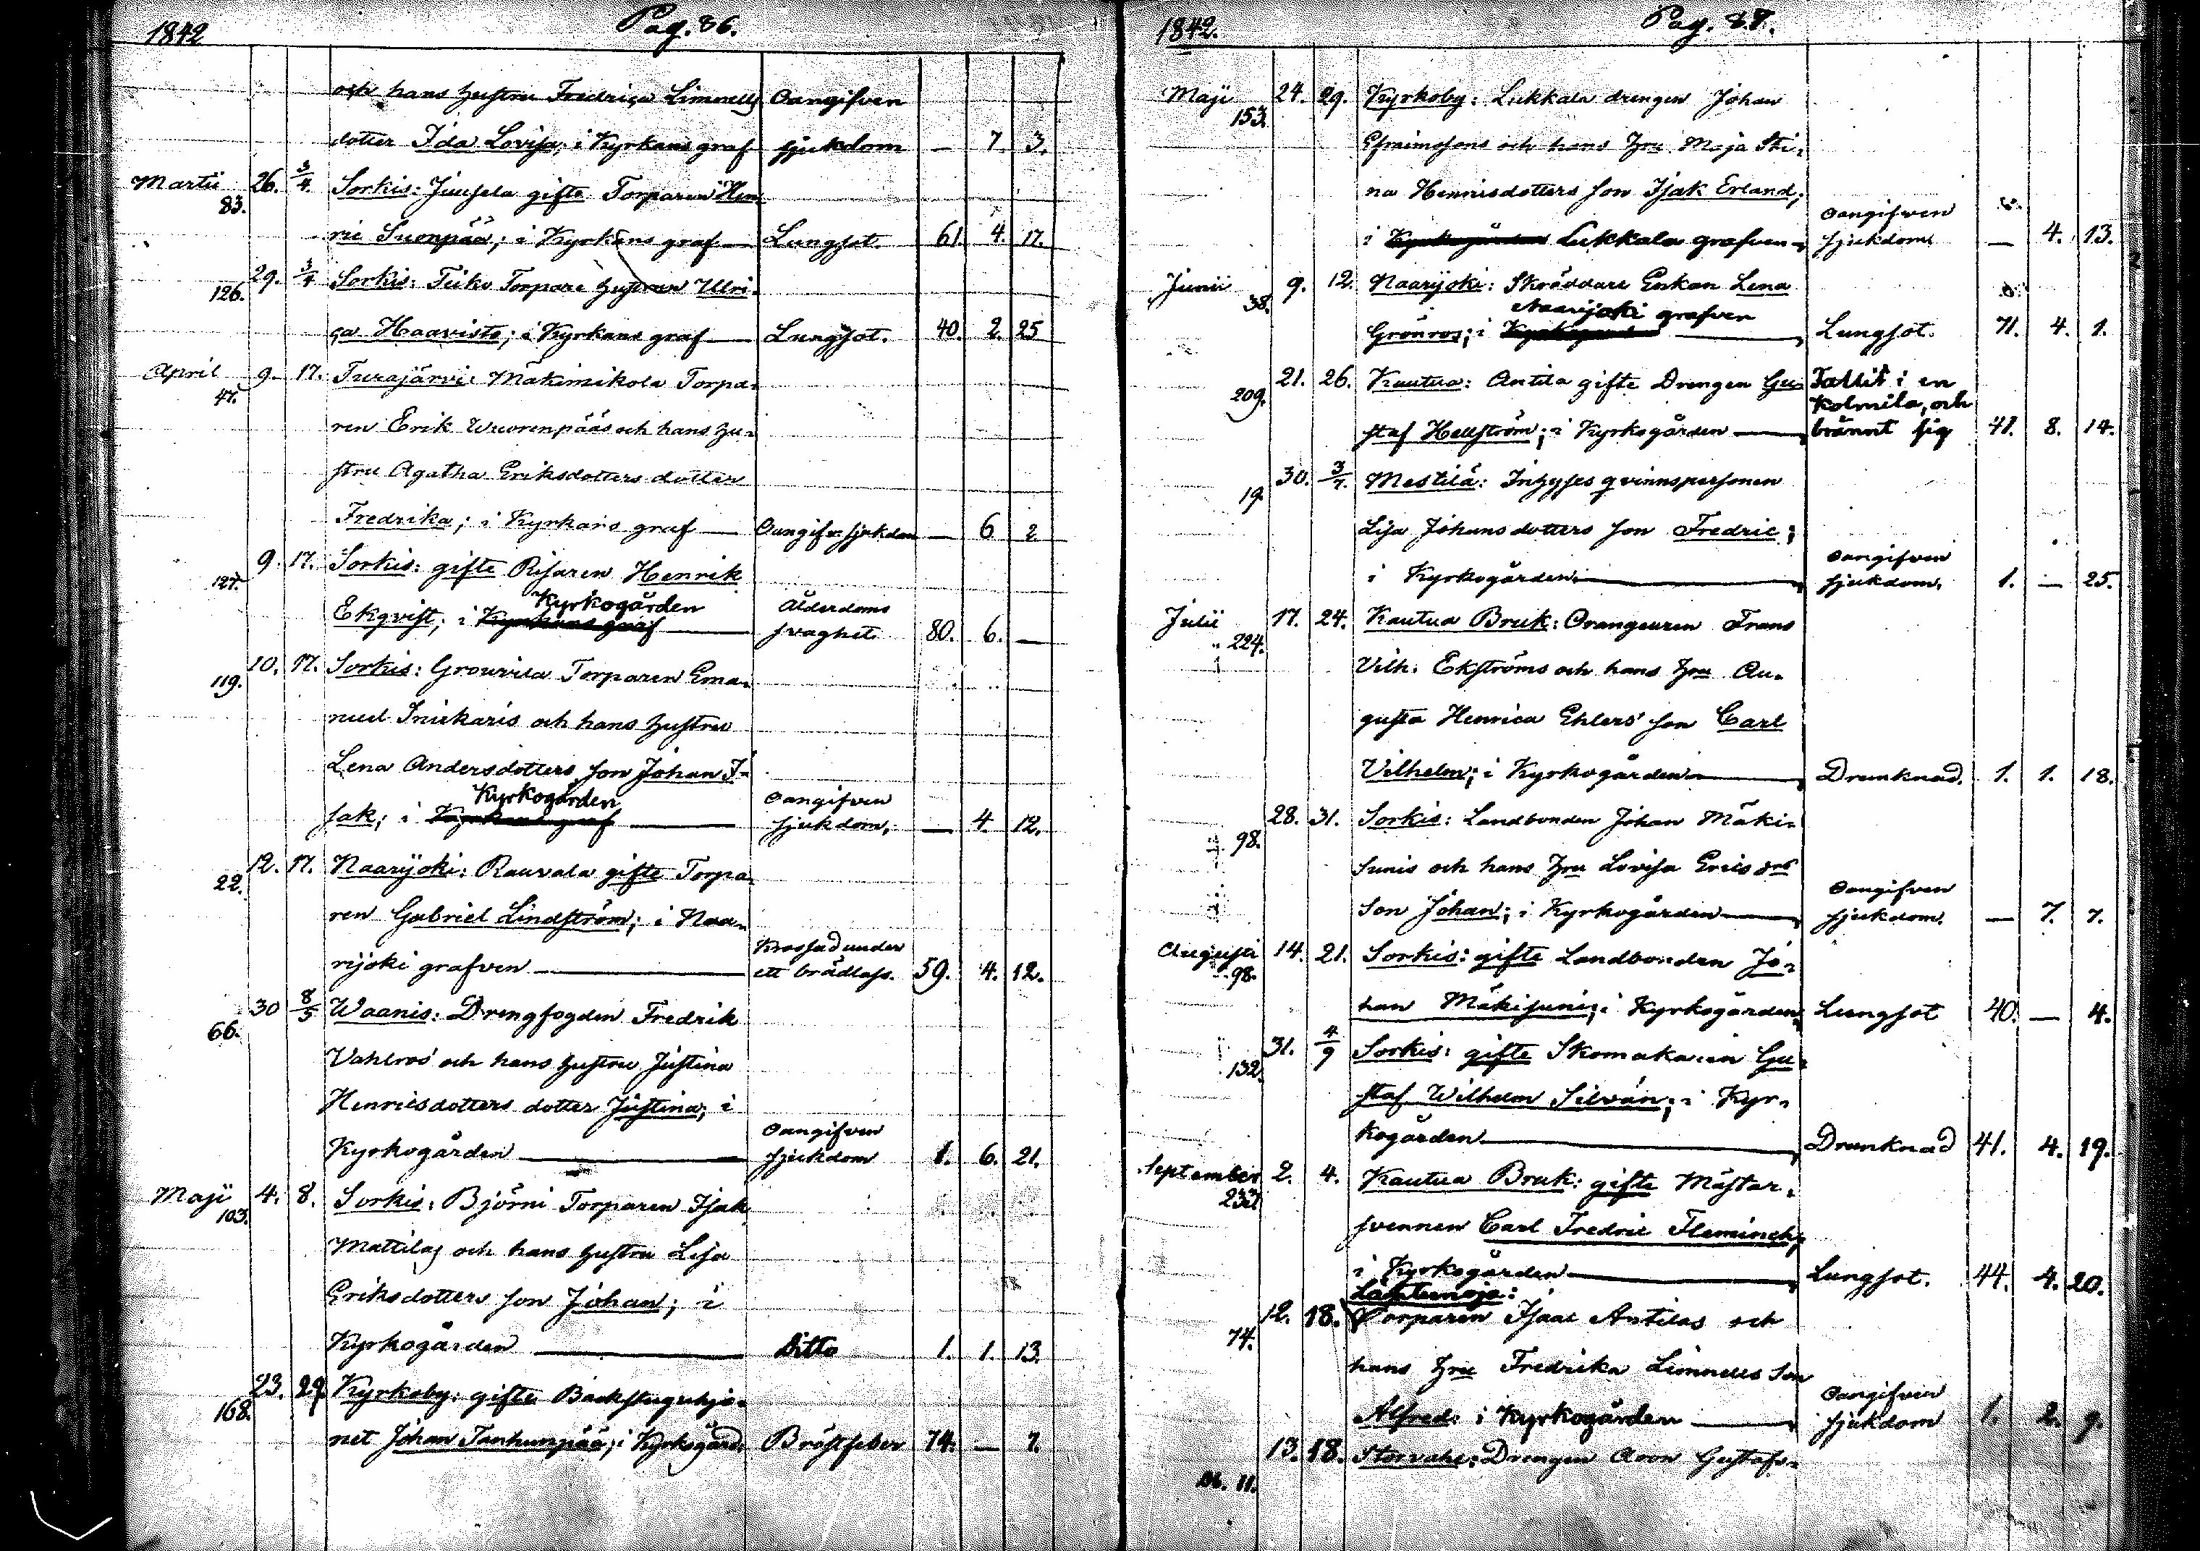 1842 Pag. 86.
och hans hustru Fredrica Limnells Oangifven
dotter Ida Lovisa; i Kyrkans graf sjukdom — 7. 3.
Martii 26. 3/4 Sorkis: Juusela gifte Torparen Hen
83. ric Suonpää; i Kyrkans graf Lungsot. 61. 4. 17.
29. 3/4 Sorkis: Tuiko Torpare hustrun Ulri-
126. ca Haavisto; i Kyrkans graf Lungsot. 40. 2. 25
April 9. 17. Turajärvi: Mäkimikola Torpa-
47. ren Erik Wuorenpääs och hans hu-
stru Agatha Eriksdotters dotter
Fredrika; i Kyrkans graf Oangifv. sjukdom — 6 2
9. 17. Sorkis: gifte Risaren Henrik
127. Kyrkogården
Ekqvist; i Kyrkans graf Ålderdoms svaghet. 80. 6. —
10. 17. Sorkis: Grouvila Torparen Ema-
119. nuel Sniekaris och hans hustru
Lena Andersdotters son Johan I-
Kyrkogården
sak; i Kyrkans graf Oangifven sjukdom. — 4. 12.
12. 17. Naarijoki: Rauvala gifte Torpa-
22. ren Gabriel Lindström; i Naa-
rijoki grafven Krossad under ett brädlass. 59. 4. 12.
30 8/5 Waanis: Drengfogden Fredrik
66. Vahlros' och hans hustru Justina
Henricsdotters dotter Justina; i
Kyrkogården Oangifven sjukdom 1. 6. 21.
Maji 4. 8. Sorkis: Björni Torparen Isak
103. Mattilas och hans hustru Lisa
Eriksdotters son Johan; i
Kyrkogården Ditto 1. 1. 13.
23. 29. Kyrkoby: gifte Backstuguhjo-
168. net Johan Tanhunpää; i Kyrkogård. Bröstfeber 74. — 7.
1842. Pag. 87.
Maji 24. 29. Kyrkoby: Lukkala drengen Johan
153. Efraimsons och hans hru Maja Sti-
na Henricsdotters son Isak Erland;
i Kyrkogården Lukkala grafven Oangifven sjukdom. — 4. 13.
Junii 9. 12. Naarijoki: Skräddare Enkan Lena
38. Naarijoki grafven
Grönros; i Kyrkogården Lungsot. 71. 4. 1.
21. 26. Kautua: Antila gifte Drengen Gu- Fallit i en
209. Kolmila, och
staf Hellström; i Kyrkogården brännt sig 41. 8. 14.
30. 3/7. Mestilä: Inhyses qvinnspersonen
19. Lisa Johansdotters son Fredric;
i Kyrkogården Oangifven sjukdom. 1. — 25.
Julii 17. 24. Kautua Bruk: Orangeuren Frans
224. Vilh. Ekströms och hans hru Au-
gusta Henrica Ehlers' son Carl
Vilhelm; i Kyrkogården Drunknad. 1. 1. 18.
28. 31. Sorkis: Landbonden Johan Mäki-
98. sunis och hans hru Lovisa Ericsdrs
son Johan; i Kyrkogården Oangifven sjukdom. — 7. 7.
Augusti 14. 21. Sorkis: gifte Landbonden Jo-
98. han Mäkisuni; i Kyrkogården Lungsot 40. — 4.
31. 4/9 Sorkis: gifte Skomakaren Gu-
132. staf Wilhelm Silván; i Kyr-
kogården Drunknad 41. 4. 19.
September 2. 4. Kautua Bruk: gifte Mästar-
svennen Carl Fredric Fleminch;
i Kyrkogården Lungsot. 44. 4. 20.
12. 18. Torparen Isaac Antilas och
74. hans hru Fredrika Limnells son
Alfred: i Kyrkogården Oangifven sjukdom 1. 2. 9.
13. 18. Storvahe: Drengen Aron Gustafs-
11.